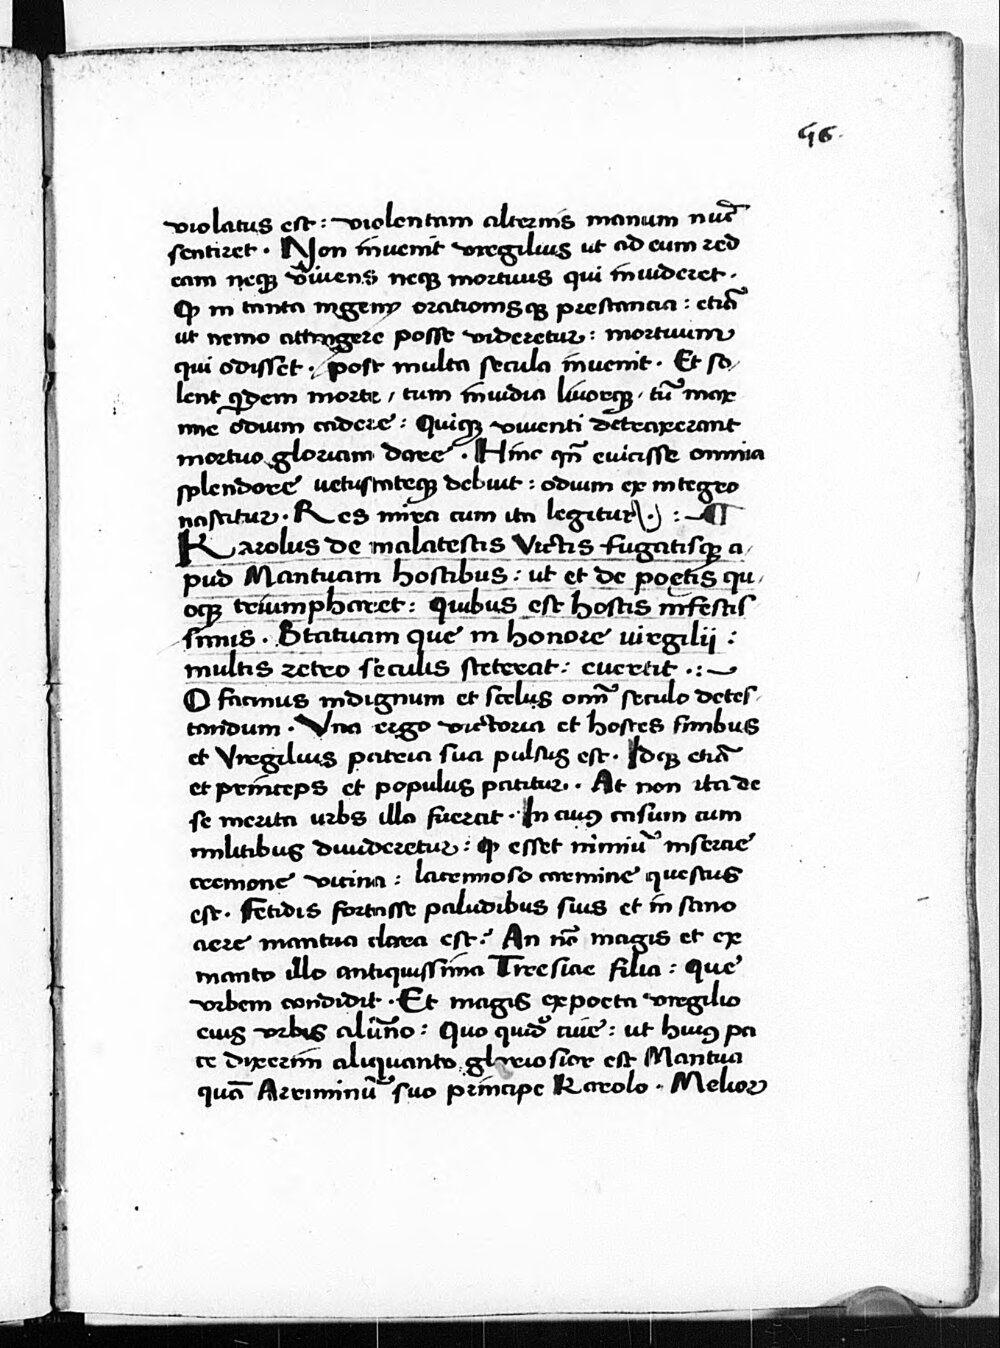 56.
violatus est : violentam alterius manum nūc
sentiret . Non invenit vregilius ut ad eum red
eam neqȝ vivens neqȝ mortuus qui invideret .
Qƥ in tanta ingenij orationisqȝ prestancia : etiā
ut nemo attingere posse videretur : mortuum
qui odisset . post multa secula invenit . Et so/
lent qdem morte / tum invidia livorqȝ / tū max
ime odium cadere : Quiqȝ viventi detraxerant
mortuo gloriam dare . Hinc qn̄ evicisse omnia
splendore vetustateqȝ debuit : odium ex integro
nascitur . Res mira cum ita legitur . :
Karolus de malatestis Victis fugatisqȝ a/
pud Mantuam hostibus : ut et de poetis qu/
oqȝ triumpharet : quibus est hostis infestis
simis . Statuam que in honore virgilij :
multis retro seculis steterat : evertit . :
O facinus indignum et scelus omī seculo detes/
tandum . Vna ergo victoria et hostes finibus
et Vregilius patria sua pulsus est . Idqȝ etiā
et princeps et populus patitur . At non ita de
se merita urbs illa fuerat . In cuiꝰ casum cum
militibus divideretur : qƥ esset nimiū misere
cremone vicina : lacrimoso carmine questus
est . Fetidis fortasse paludibus suis et in sano
aere mantua clara est ? An nō magis et ex
manto illo antiquissima Tiresiae filia : que
vrbem condidit . Et magis ex poeta vregilio
eius vrbis alūno : Quo quidē cive : ut huiꝰ pa
ce dixerim aliquanto gloriosior est Mantua
quā Arriminū suo principe Karolo . Melior